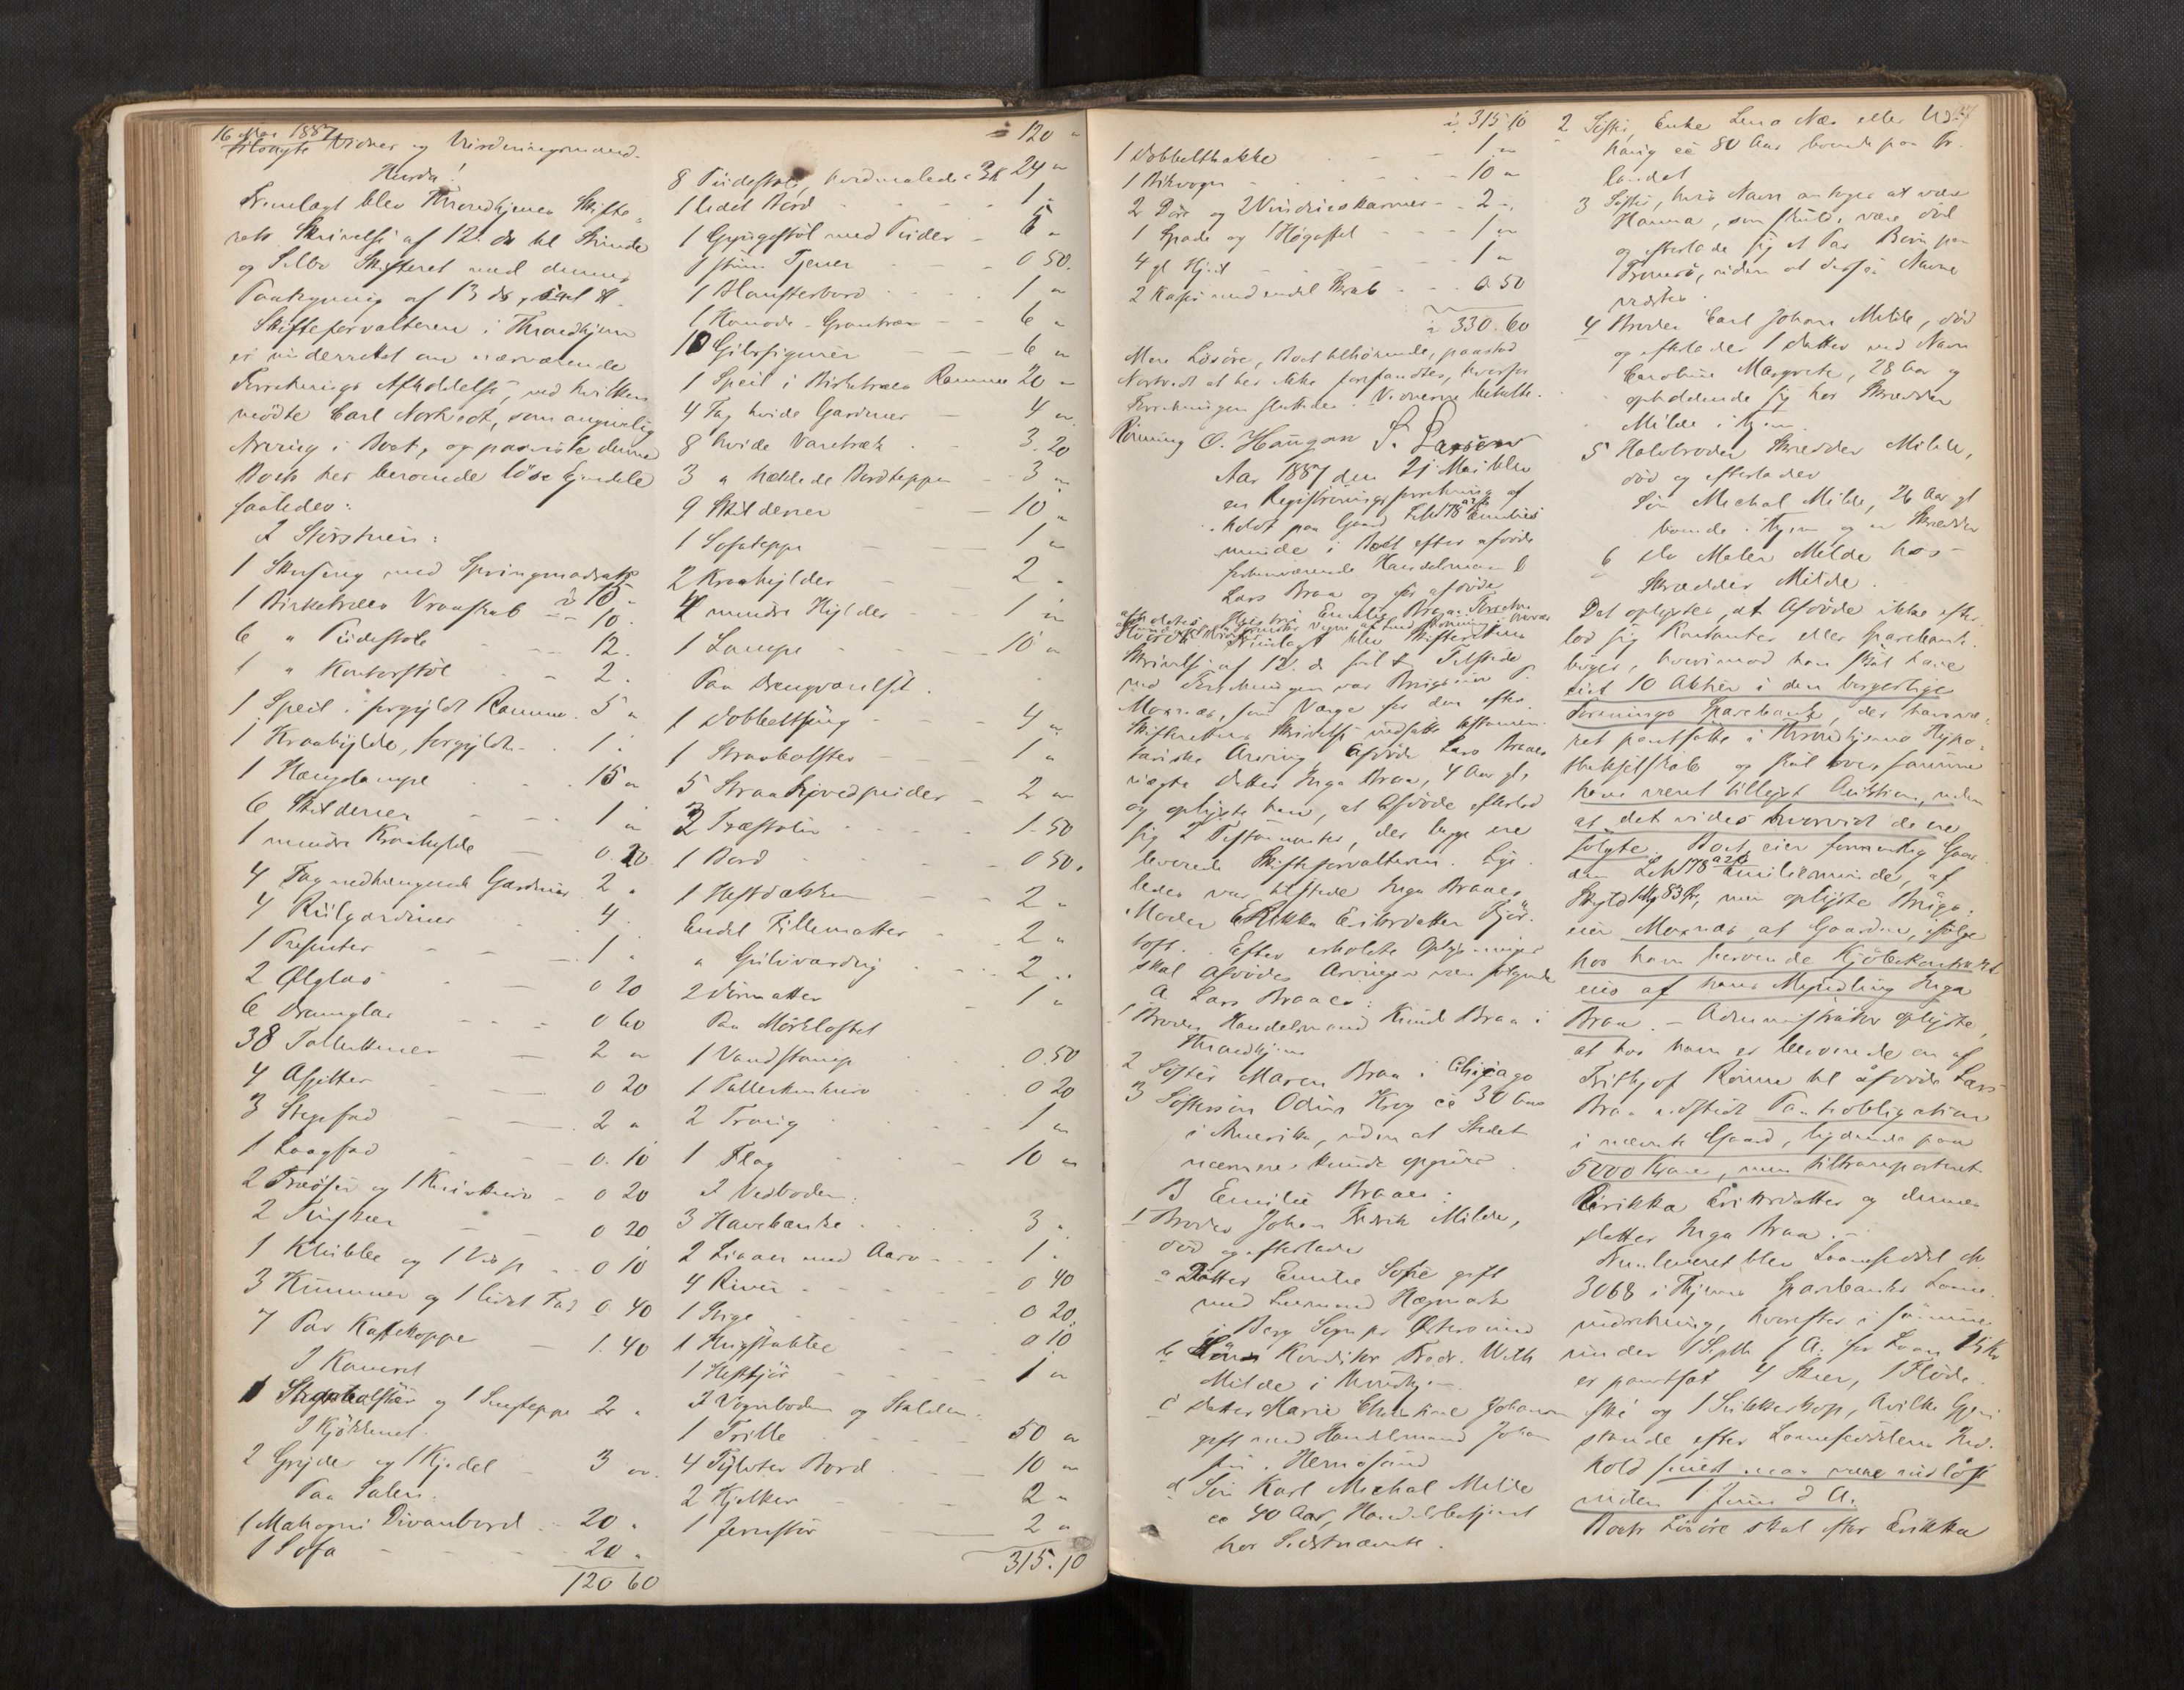 16 Mai 1887
tilsagte Vidner og Vurderingsmænd.
Hvorda!
Fremlagt blev Throndhjems Skifte-
rets Skrivelse af 12. ds til Strinde
og Selbo Skifteret med dennes
Paategning af 13 ds, saal.
Skifteforvalteren i Throndhjem
er underrettet om nærværende
Forretnings Afholdelse, ved hvilken
mødte Carl Norkvedt, som angivelig
Arving i Boet, og paaviste dennes
Boets her beroende løse Eiendele
saaledes:
I Storstuen:
1 Skufseng med Springmadrats
i 15 "
1 Birketræes Vraaskab - 10.
6 " Pudestole - - 12.
1 " Kontorstol - - 2.
1 Speil i forgyldt Ramme. 5 "
1 Kraahylde, forgyldt - . 1.
1 Hængelampe - - 15 "
6 Skilderier - - 1 "
1 mindre Kraahylde - 0.20
4 Fag nedhængende Gardiner 2 "
4 Rulgardiner - 4.
1 Presenter - - 1 "
2 Ølglas - - 0 20
6 Dramglas - - 0 60
38 Tallerkener - 2 "
4 Asjetter - - 0 20
3 Stegefad - - 2 "
1 Laagfad - - 0. 10
2 Træøser og 1 Knivkurv - 0 20
2 - - 0 20
1 Klubbe og 1 Visp - 0 10
3 Kummer og 1 lidet Fad 0. 40
7 Par Kaffekoppe - 1. 40
I Kammeret
1 og 1 Sengteppe 2 "
I Kjøkkenet.
2 Gryder og 1 Kjedel - 3 "
Paa Salen.
1 Mahogni Divanbord - 20 "
1 Sofa - - 20 "
120 60
120 "
8 Pudestole, hvidmalede a 3 k 24 "
1 lidet Bord - - 1 "
1 Gyngestol med Puder - 5 "
1 Tjener - - 0 50.
1 Blomsterbord - - 1 "
1 Komode - Grantræ - - 6 "
10 Gibsfigurer - - 6 "
1 Speil i Birketræes Ramme 20 "
4 Fag hvide Gardiner - 4 "
8 hvide Varetræk - 3. 20
3 " heklede Bordtepper - 3 "
9 Skilderier - 10 "
1 Sofateppe - - 1 "
2 Kraahylder - - 2 "
4 mindre Hylder - 1 "
1 Lampe - - 10 "
Paa
1 Dobbeltseng - - 4 "
1 Straabolster - - 1 "
5 Straahovedpuder - 2 "
3 Træstoler - - 1. 50
1 Bord - - 0 50.
1 Hestdækken - - 2 "
Endel Fillematter - 2 "
" Gulvvarding - 2 "
2 Dørmatter - 1 "
Paa Mørkloftet
1 Vandstamp - - 0. 50
1 Tallerkenkurv - - 0 20
2 Traug - - 1 "
1 Flag - - 10 "
I Vedboden:
3 Havebænke - - 3 "
2 Liaaer med Aarv - - 1 "
4 River - - 0 40
1 Stige - - 0 20
1 Hugstabbe - - 0 10
1 - - 1 "
I Vognboden og Stalden:
1 Trille - - 50 "
4 Tylvter Bord - - 10 "
2 Kjelker - - 2 "
1 Jernstør - - 2 "
315. 10
i 315. 10
1 Dobbelthakke - - 1 "
1 - - 10 "
2 Døre og 2 Vindueskarmer - 2 "
1 Spade og 1 Høgaffel - - 1 "
4 gl Hjul - - 1 "
2 Kasser med endel Skrab - - 0. 50
i 330. 60
Mere Løsøre, Boet tilhørende, paastod
Norkvedt at her ikke forefandtes, hvorfor
Forretningen sluttedes. Vidnerne betalte.
Rønning O. Haugan S. Larsen
Aar 1887 den 21 Mai blev
en Registreringsforretning af-
holdt paa Gaard L.No 78 a Emilies-
minde i Boet efter afdøde
forhenværende Handelsmand
Lars Braa og før afdøde
Hustru Emilie Braa. Forretn.
Fremlagt blev Skifterettens
Skrivelse af 12. ds Tilstede
ved Forretningen var Brigader P.
Moxnes, som Værge for den efter
Skifterettens Skrivelse indsatte testamen-
tariske Arving Afdøde Lars Braaes
uægte Datter Inga Braa, 4 Aar gl,
og oplyste han, at Afdøde efterlod
sig 2 Testamenter, der begge ere
leverede Skifteforvalteren. Lige-
ledes var tilstede Inga Braaes
Moder Erikka Eriksdatter
Efter erholdte Oplysninger
skal Afdødes Arvinger være følgende
A Lars Braaes:
1 Broder Handelsmand Knud Braa i
Throndhjem
2 Søster Maren Braa i Chicago
3 Søstersøn Odin Krog ca 30 Aar
i Amerika, uden at Stedet
nærmere kunde opgives.
B Emilie Braaes:
1 Broder Johan Fredrik Milde,
død og efterlader
a Datter Emilie Sofie gift
med Lensmand Hegmark
i Berg Sogn pr Østersund
b Søn Konditor Fredr. With
Milde i Throndhjem.
c Datter Marie Christine Johanson
gift med Handelsmand Johan-
son. Hernøsand
d Søn Karl Michal Milde
ca 40 Aar, Handelsbetjent
hos Sidstnævnte.
2 Søster, Enke Lena Næs eller
ca 80 Aar boende paa
landet
3 Søster, hvis Navn antages at være
Hanna, som skulde være død
og efterlade sig et Par Børn paa
Tromsø, uden at disses Navne
vidstes.
4 Broder Carl Johan Milde, død
og efterlader 1 Datter ved Navn
Caroline Margrete, 28 Aar og
opholdende sig hos Skrædder
Milde i Thjem
5 Halvbroder Skrædder Milde,
død og efterlader
Søn Michal Milde, 26 Aar gl
boende i Thjem og er Skrædder
6 do Meler Milde hos
Skrædder Milde.
Det oplystes, at Afdøde ikke efter-
lod sig Kontanter eller Sparebank-
bøger, hvorimod han skal have
eiet 10 Aktier i den borgerlige
Forenings Sparebank, der har væ-
ret pantsatte i Throndhjems Hypo-
thekselskab og skal over samme
have været tillyst Auktion, uden
at det vides hvorvidt de ere
solgte. Boet eier formentlig Gaar-
den L.No 78 a Emiliesminde, af
Skyld 83, men oplyste Briga-
der Moxnes, at Gaarden, ifølge
hos ham beroende Kjøbekontrakt
eies af hans Myndling Inga
Braa. - Administrator oplyste,
at hos ham er beroende en af
Frithjof Rønne til afdøde Lars
Braa udstedt Panteobligation
i nævnte Gaard, lydende paa
5000 Kroner, men tiltransporteret
Erikka Eriksdatter og dennes
Datter Inga Braa. -
Fremleveret blev Laaneseddel No
3068 i Thjems Sparebanks Laane-
indretning, hvorefter i samme
under 1 Septb f. A. for Laan 15 Kr
er pantsat 4 Skeer, 1 Fløde-
ske og 1 Sukkerkop, hvilke Gjen-
stande efter Laaneseddelens Ind-
hold senest maa være indløst
inden 1 Juni d A.
Boets Løsøre skal efter Erikka